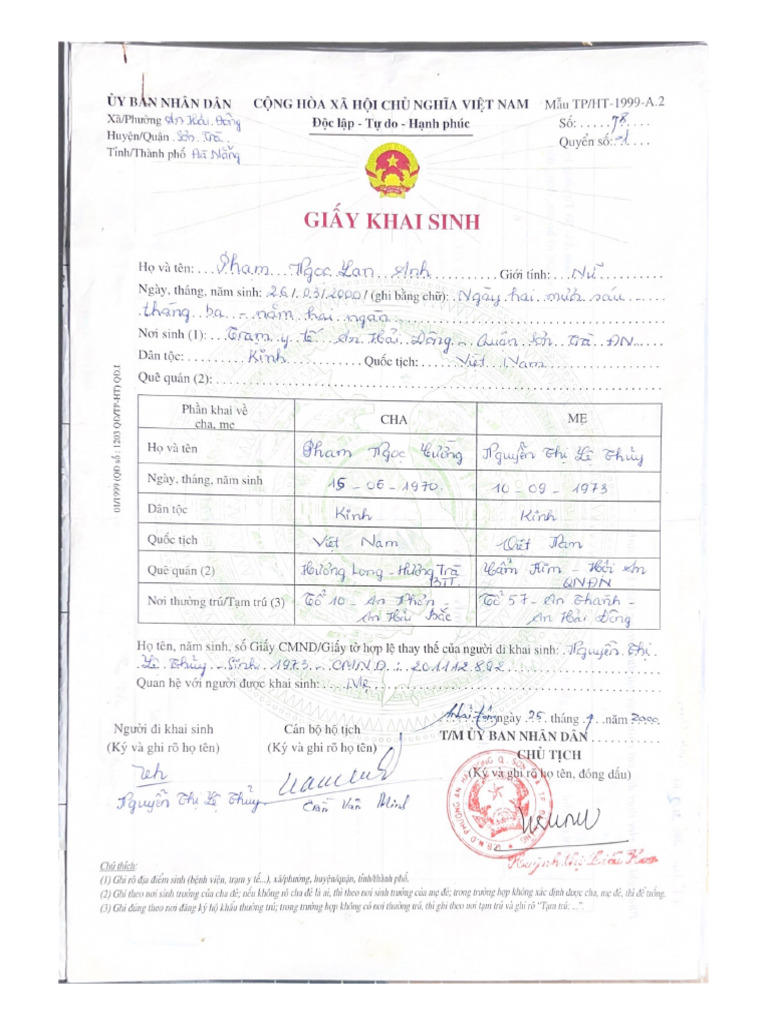 ỦY BAN NHÂN DÂN
Xã/Phường An Hải Đông
Huyện/Quận Sơn Trà
Tỉnh/Thành phố Đà Nẵng
CỘNG HÒA XÃ HỘI CHỦ NGHĨA VIỆT NAM
Độc lập - Tự do - Hạnh phúc
Mẫu TP/HT-1999-A.2
Số: 78
Quyển số: 01
GIẤY KHAI SINH
Họ và tên: Phạm Ngọc Lan Anh Giới tính: Nữ
Ngày, tháng, năm sinh: 26/03/2000 (ghi bằng chữ): Ngày hai mươi sáu
tháng ba - năm hai ngàn
Nơi sinh (1): Trạm y tế An Hải Đông - Quận Sơn Trà ĐN
Dân tộc: Kinh Quốc tịch: Việt Nam
Quê quán (2):
Phần khai về cha, mẹ CHA MẸ
Họ và tên Phạm Ngọc Hường Nguyễn Thị Lệ Thủy
Ngày, tháng, năm sinh 15-06-1970 10-09-1973
Dân tộc Kinh Kinh
Quốc tịch Việt Nam Việt Nam
Quê quán (2) Hương Long - Hương Trà BTT. Cẩm Kim - Hội An QNĐN
Nơi thường trú/Tạm trú (3) Tổ 10 - An Hải Bắc Tổ 57 - An Thanh - An Hải Đông
Họ tên, năm sinh, số Giấy CMND/Giấy tờ hợp lệ thay thế của người đi khai sinh: Nguyễn Thị
Lệ Thủy - Sinh 1973 - CMND: 201112892
Quan hệ với người được khai sinh: Mẹ
ngày 25 tháng 9 năm 2000
Người đi khai sinh
(Ký và ghi rõ họ tên)
Nguyễn Thị Lệ Thủy
Cán bộ hộ tịch
(Ký và ghi rõ họ tên)
Trần Văn Minh
T/M ỦY BAN NHÂN DÂN
CHỦ TỊCH
(Ký và ghi rõ họ tên, đóng dấu)
Huỳnh Thị Liễu
01/1999 (QĐ số : 1203 QĐ/TP-HT) QĐ.1
Chú thích:
(1) Ghi rõ địa điểm sinh (bệnh viện, trạm y tế...), xã/phường, huyện/quận, tỉnh/thành phố.
(2) Ghi theo nơi sinh trưởng của cha đẻ; nếu không rõ cha đẻ là ai, thì theo nơi sinh trưởng của mẹ đẻ; trong trường hợp không xác định được cha, mẹ đẻ, thì để trống.
(3) Ghi đúng theo nơi đăng ký hộ khẩu thường trú; trong trường hợp không có nơi thường trú, thì ghi theo nơi tạm trú và ghi rõ "Tạm trú: ...".